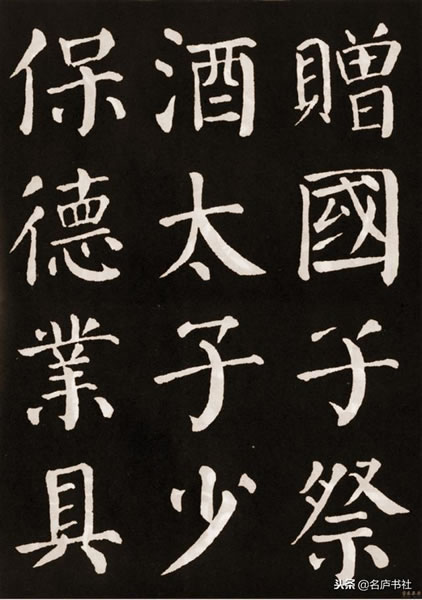 贈國子祭
酒太子少
保德業具
头条@名庐书社